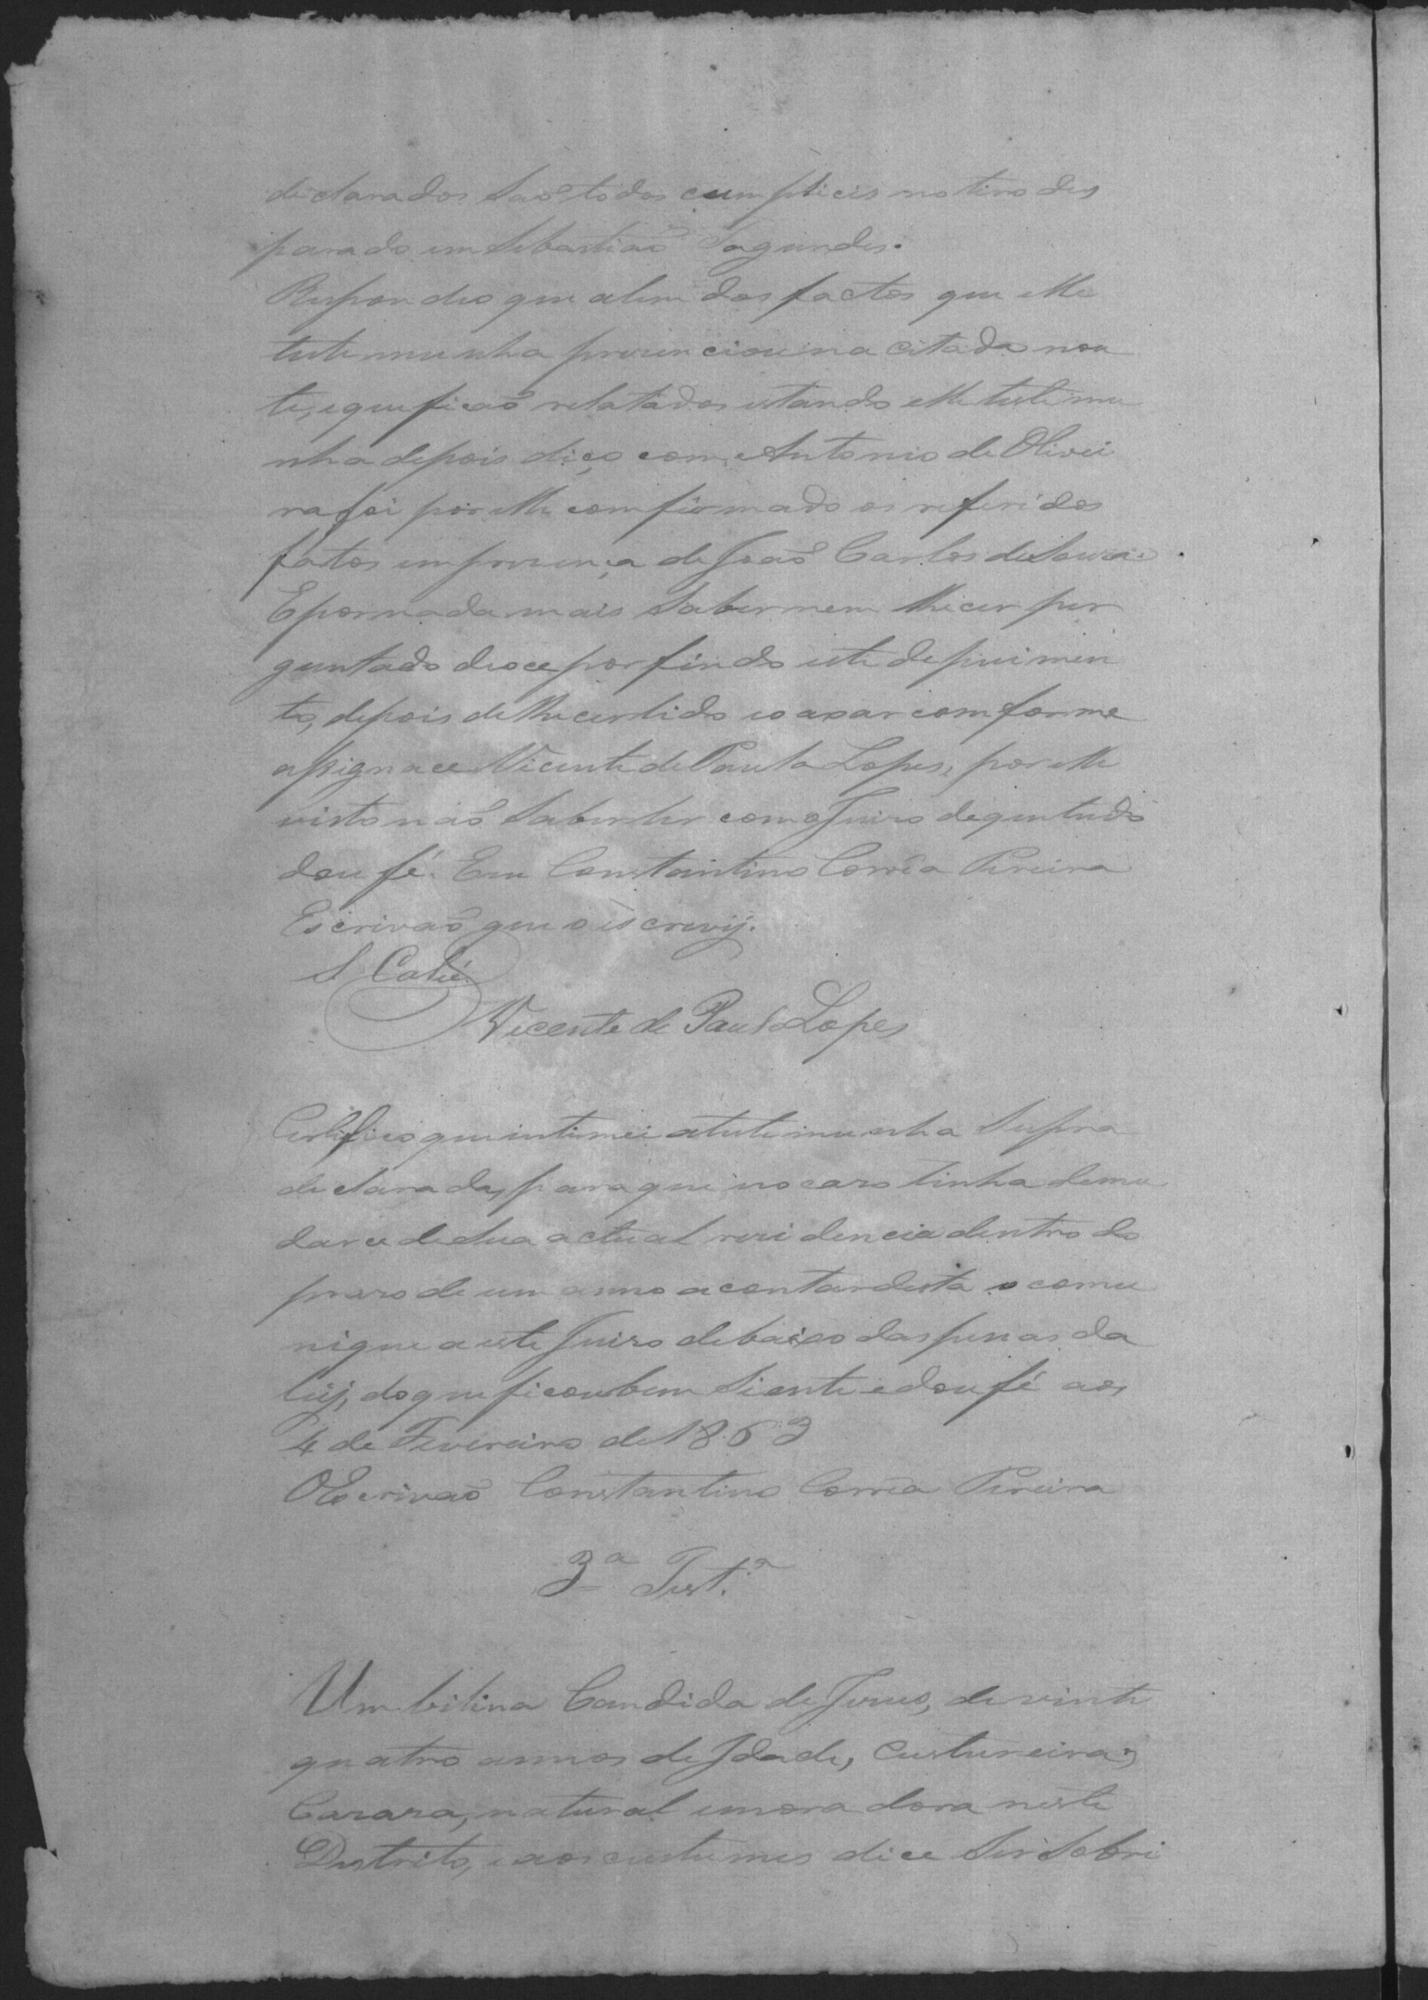 declarados saõ todos cumplicis no tiro des
parado em Sebastiaõ Fagundes.
Respondeo que alem dos factos que elle
testemunha prezenciou na citada noa
te, eque ficaõ relatados estando elle testemu
nha depois diço com Antonio de Olivei
ra foi por elle comfirmado os referidos
fatos em prezença de Joaõ Carlos de Souza.
E por nada mais saber nem lhe cer per
guntado deoce por findo este depuimen
to, depois de lhe cer lido eo axar comforme
assignace Vicente de Paula Lopes, por elle
visto naõ saber ler com o Juizo de que tudo
dou fé. Eu Constantino Corrêa Pereira
Escrivaõ que o escrevij.
Vicente de Paulo Lopes
Certifico que intimei a testemunha supra
declarada, para que no cazo tinha de mu
darce de sua actual rezidencia dentro do
prazo de um anno a contar desta o comu
nique a este Juizo debaixo das penas da
Leij, do que ficou bem siente e dou fé aos
4 de Fevereiro de 1863
O Escrivaõ Constantino Corrêa Pereira
3ª Test.ª
Umbilina Candida de Jezus, de vinte
quatro annos de Idade, Custureira,
Cazaza, natural emoradora neste
Destrito, eaos custumes dice ser sobri